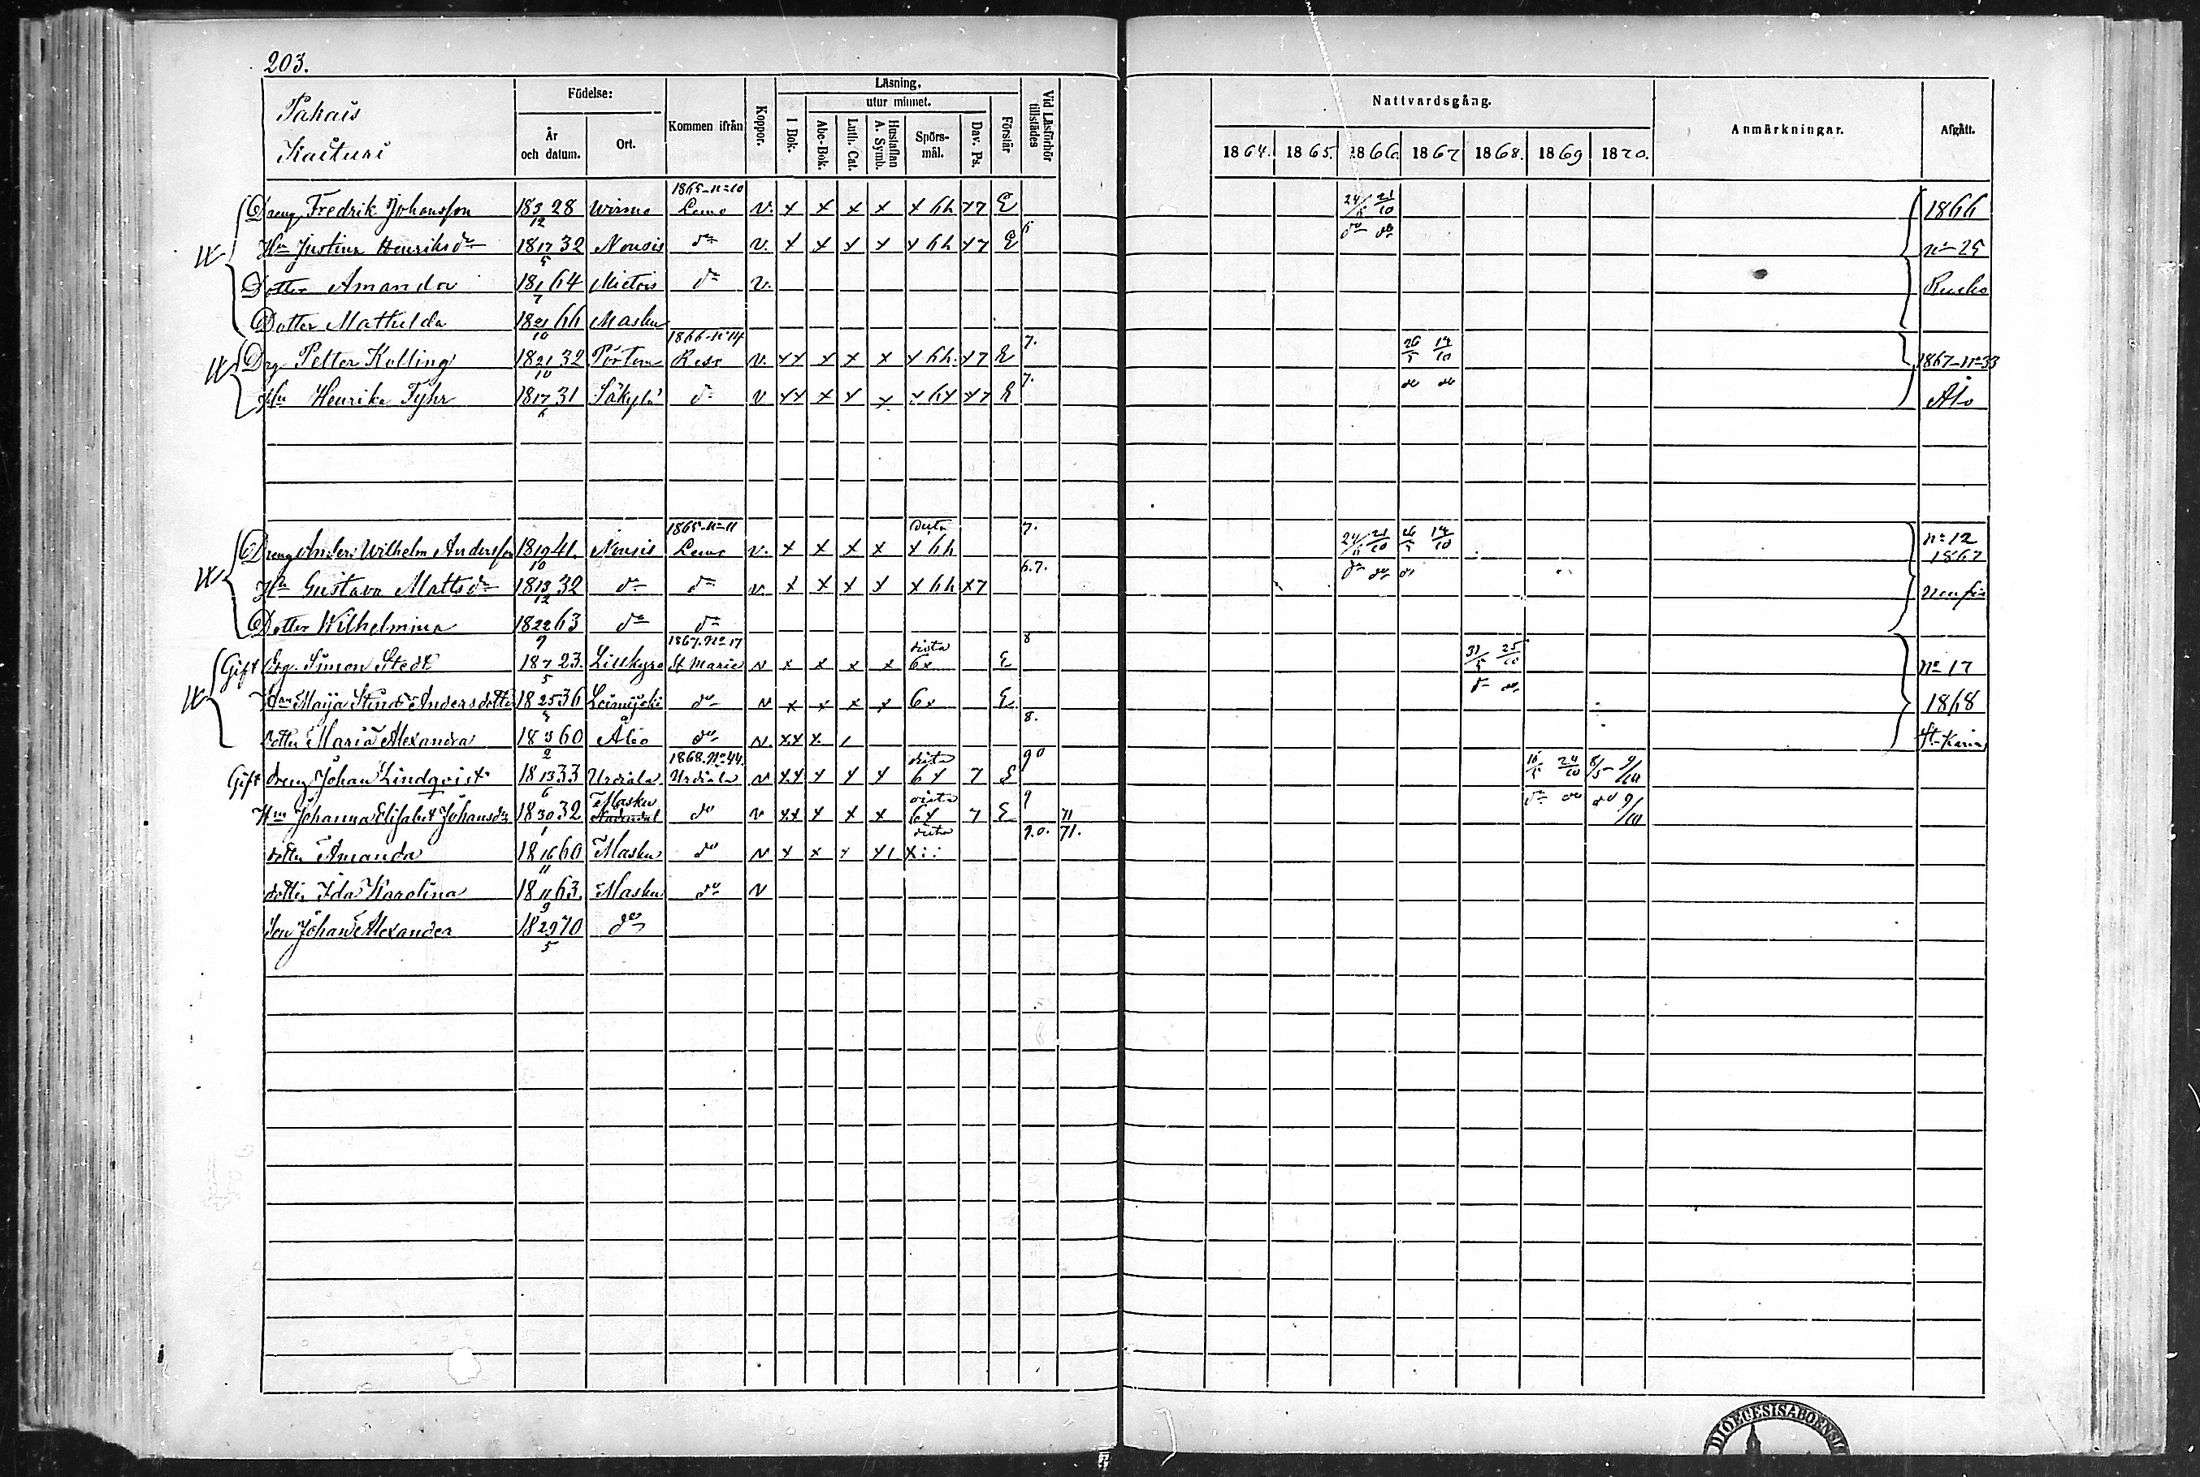 203.
Pakais
Kaituri
Födelse:
År
och datum.
Ort.
Kommen ifrån
Koppor.
Läsning,
utur minnet.
I Bok.
Abc-Bok.
Luth. Cat.
Hustaflan
A. Symb.
Spörs-
mål.
Dav. Ps.
Förstår
Vid Läsförhör
tillstädes
Nattvardsgång.
1864. 1865. 1866. 1867 1868. 1869 1870.
Anmärkningar.
Afgått.
1865 - no 10
Dreng Fredrik Johansson 18 3/12 28 Wirmo Lemo v. x x x x x 6h x7 E 24/6 21/10 1866
Hu Justina Henriksdr 18 17/5 32 Nousis do v. x x x x x 6h x7 E 6 do do no 25
Dotter Amanda 18 1/7 64 Mietois do v. Rusko
Dotter Mathilda 18 21/10 66 Masku
1866 - no 14
Drg Petter Kolling 18 21/10 32 Reso v. xx x x x x 6h. x7 E 7. 26/5 14/10 1867 - no 33
Hu Henrika Fyhr 18 17/6 31 Säkylä do v xx x x x x 6x x7 E 7. do do Åbo
1865 - no 11
Dreng Anders Wilhelm Andersson 18 19/10 41. Nousis Lemo v. x x x x x 6h 7. 24/6 21/10 26/5 14/10 no 12
1867
Hu Gustava Mattsdr 18 13/12 32 do do v. x x x x x 6h x7 6.7. do do do
Dotter Wilhelmina 18 22/9 63 do do
1867. No 17
Gift Drg. Simon Stedt 18 7/5 23. Lillkyro St Marie v x x x x 6x E 8 31/5 25/10 no 17
Hu Maija Stina Andersdotter 18 25 36 do v x x x x 6x E do do 1868
dotter Maria Alexandra 18 3/2 60 Åbo do v. xx x. 8. St. Karins
1868. No 44.
Gift dreng Johan Lindqvist 18 13/6 33 Urdiala Urdiala v xx x x x 6x 7 E 9 0 16/5 24/10 8/5 9/10
Hu Johanna Elisabet Johansdr 18 30/1 32 Masku do v xx x x x 6x 7 E 9 71 do do do 9/10
dotter Amanda 18 16/11 60 Masku do v x x x x1 x:: 9.0. 71.
dotter Ida Karolina 18 11/9 63. Masku do v
Son Johan Alexander 18 29/5 70 do
DIOECESIS ABOENSIS